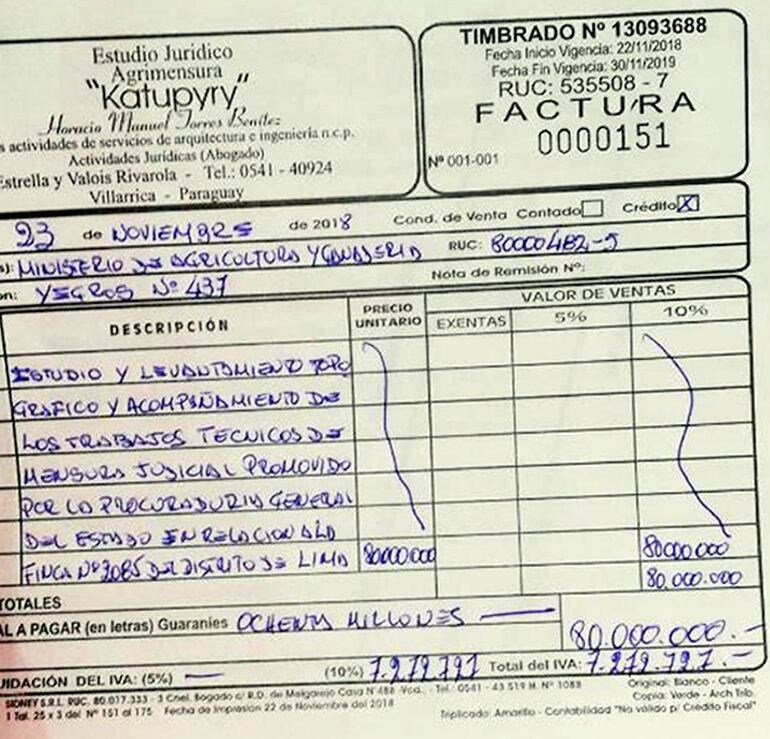 Estudio Jurídico
Agrimensura
"Katupyry"
Horacio Manuel Torres Benítez
s actividades de servicios de arquitectura e ingeniería n.c.p.
Actividades Jurídicas (Abogado)
Estrella y Valois Rivarola - Tel.: 0541 - 40924
Villarrica - Paraguay
TIMBRADO Nº 13093688
Fecha Inicio Vigencia: 22/11/2018
Fecha Fin Vigencia: 30/11/2019
RUC: 535508 - 7
FACTURA
0000151
Nº 001-001
23 de NOVIEMBRE de 2018 Cond. de Venta Contado Crédito X
): MINISTERIO DE AGRICULTURA Y GANADERIA RUC: 80000482-5
on: YEGROS Nº 437 Nota de Remisión Nº:
DESCRIPCIÓN PRECIO UNITARIO VALOR DE VENTAS
EXENTAS 5% 10%
ESTUDIO Y LEVANTAMIENTO TOPO
GRAFICO Y ACOMPAÑAMIENTO DE
LOS TRABAJOS TECNICOS DE
MENSURA JUDICIAL PROMOVIDO
POR LA PROCURADURIA GENERAL
DEL ESTADO EN RELACION A LA
FINCA Nº 2085 DEL DISTRITO DE LIMA 80000000 80000.000
80.000.000
TOTALES
AL A PAGAR (en letras) Guaraníes OCHENTA MILLONES 80.000.000.-
UIDACIÓN DEL IVA: (5%) — (10%) 7.272.727 Total del IVA: 7.272.727.-
SIDNEY S.R.L. RUC. 80.017.333 - 3 Cnel. Bogado c/ R.D. de Melgarejo Casa Nº 488 -Vca.. - Tel. 0541 - 43 519 H. Nº 1088
1 Tal. 25 x 3 del Nº 151 al 175 Fecha de Impresión 22 de Noviembre del 2018
Original: Blanco - Cliente
Copia: Verde - Arch Trib.
Triplicado: Amarillo - Contabilidad "No válido p/ Crédito Fiscal"